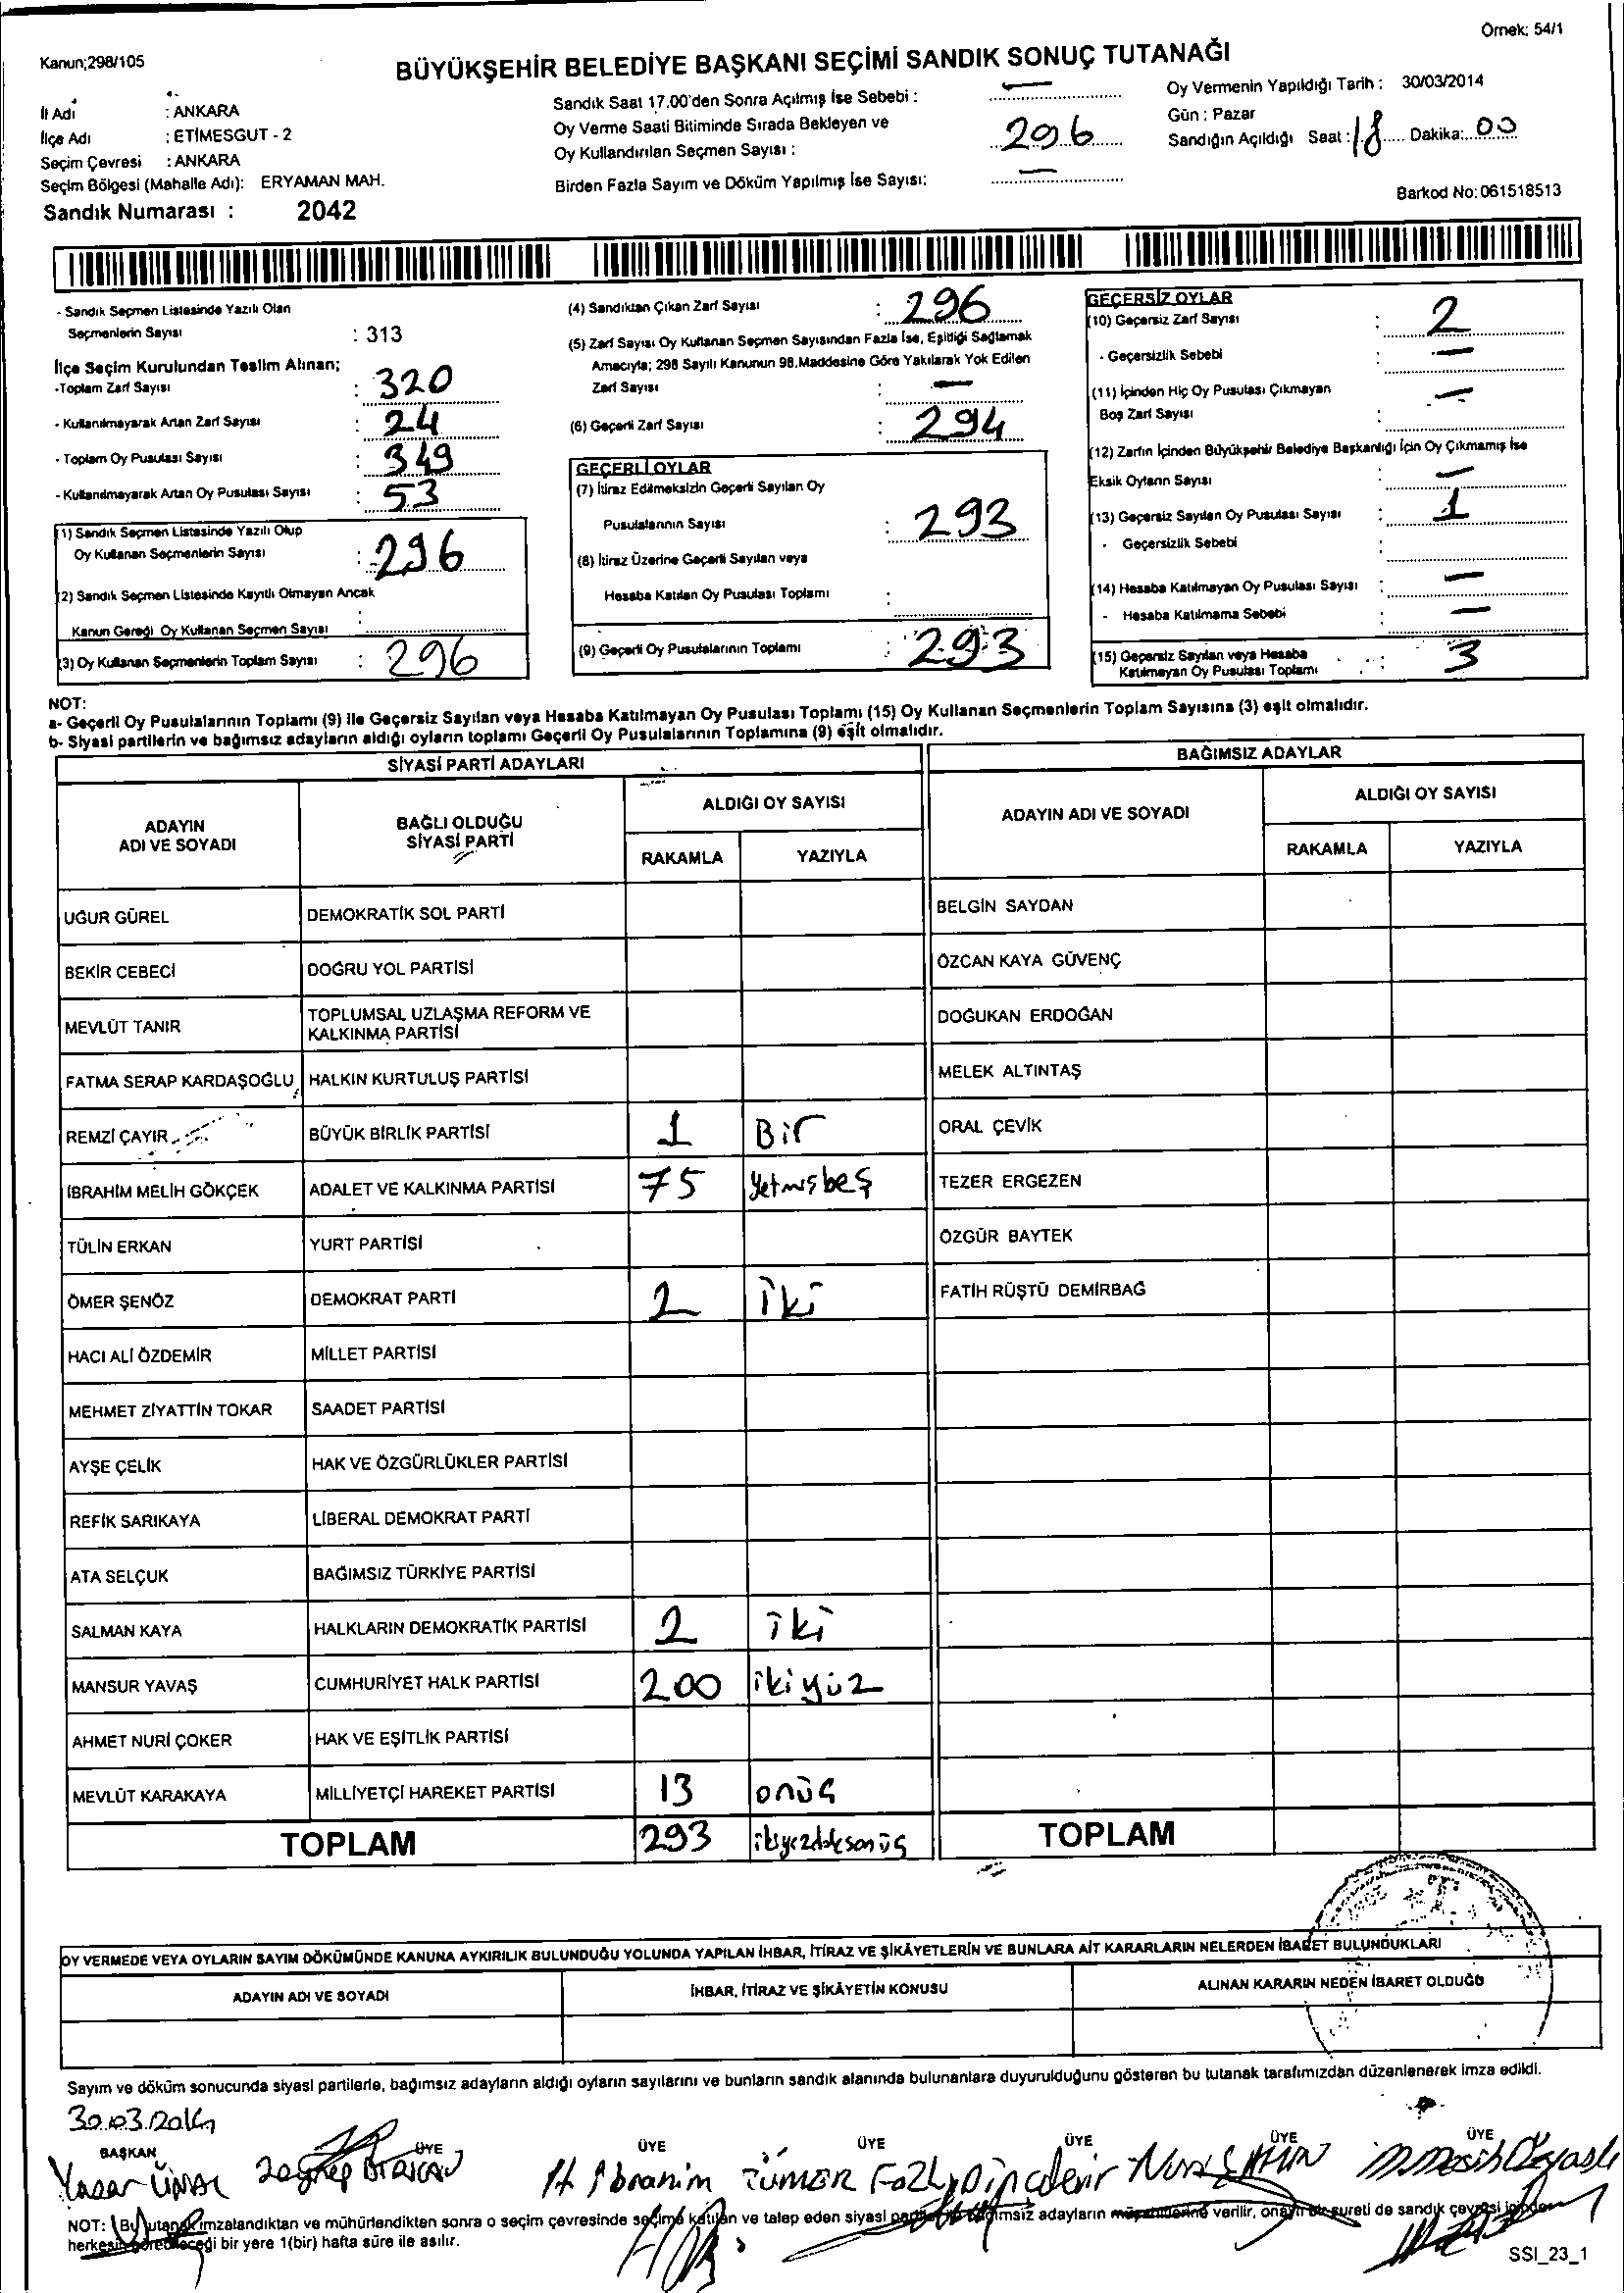 Örnek: 54/1
Kanun;298/105
BÜYÜKŞEHİR BELEDİYE BAŞKANI SEÇİMİ SANDIK SONUÇ TUTANAĞI
İl Adı : ANKARA
İlçe Adı : ETİMESGUT - 2
Seçim Çevresi : ANKARA
Seçim Bölgesi (Mahalle Adı): ERYAMAN MAH.
Sandık Numarası : 2042
Sandık Saat 17.00'den Sonra Açılmış İse Sebebi : —
Oy Verme Saati Bitiminde Sırada Bekleyen ve
Oy Kullandırılan Seçmen Sayısı : 296
Birden Fazla Sayım ve Döküm Yapılmış İse Sayısı: —
Oy Vermenin Yapıldığı Tarih : 30/03/2014
Gün : Pazar
Sandığın Açıldığı Saat : 18 Dakika: 00
Barkod No: 061518513
- Sandık Seçmen Listesinde Yazılı Olan
Seçmenlerin Sayısı : 313
İlçe Seçim Kurulundan Teslim Alınan;
-Toplam Zarf Sayısı : 320
- Kullanılmayarak Artan Zarf Sayısı : 24
- Toplam Oy Pusulası Sayısı : 349
- Kullanılmayarak Artan Oy Pusulası Sayısı : 53
(1) Sandık Seçmen Listesinde Yazılı Olup
Oy Kullanan Seçmenlerin Sayısı : 296
(2) Sandık Seçmen Listesinde Kayıtlı Olmayan Ancak
Kanun Gereği Oy Kullanan Seçmen Sayısı :
(3) Oy Kullanan Seçmenlerin Toplam Sayısı : 296
(4) Sandıktan Çıkan Zarf Sayısı : 296
(5) Zarf Sayısı Oy Kullanan Seçmen Sayısından Fazla İse, Eşitliği Sağlamak
Amacıyla; 298 Sayılı Kanunun 98.Maddesine Göre Yakılarak Yok Edilen
Zarf Sayısı : —
(6) Geçerli Zarf Sayısı : 294
GEÇERLİ OYLAR
(7) İtiraz Edilmeksizin Geçerli Sayılan Oy
Pusulalarının Sayısı : 293
(8) İtiraz Üzerine Geçerli Sayılan veya
Hesaba Katılan Oy Pusulası Toplamı :
(9) Geçerli Oy Pusulalarının Toplamı : 293
GEÇERSİZ OYLAR
(10) Geçersiz Zarf Sayısı : 2
- Geçersizlik Sebebi : —
(11) İçinden Hiç Oy Pusulası Çıkmayan —
Boş Zarf Sayısı :
(12) Zarfın İçinden Büyükşehir Belediye Başkanlığı İçin Oy Çıkmamış İse
Eksik Oyların Sayısı : —
(13) Geçersiz Sayılan Oy Pusulası Sayısı : 1
- Geçersizlik Sebebi :
(14) Hesaba Katılmayan Oy Pusulası Sayısı : —
- Hesaba Katılmama Sebebi : —
(15) Geçersiz Sayılan veya Hesaba
Katılmayan Oy Pusulası Toplamı : 3
NOT:
a- Geçerli Oy Pusulalarının Toplamı (9) ile Geçersiz Sayılan veya Hesaba Katılmayan Oy Pusulası Toplamı (15) Oy Kullanan Seçmenlerin Toplam Sayısına (3) eşit olmalıdır.
b- Siyasi partilerin ve bağımsız adayların aldığı oyların toplamı Geçerli Oy Pusulalarının Toplamına (9) eşit olmalıdır.
SİYASİ PARTİ ADAYLARI
ADAYIN ADI VE SOYADI
BAĞLI OLDUĞU SİYASİ PARTİ
ALDIĞI OY SAYISI
RAKAMLA YAZIYLA
UĞUR GÜREL DEMOKRATİK SOL PARTİ
BEKİR CEBECİ DOĞRU YOL PARTİSİ
MEVLÜT TANIR TOPLUMSAL UZLAŞMA REFORM VE
KALKINMA PARTİSİ
FATMA SERAP KARDAŞOĞLU HALKIN KURTULUŞ PARTİSİ
REMZİ ÇAYIR BÜYÜK BİRLİK PARTİSİ 1 Bir
İBRAHİM MELİH GÖKÇEK ADALET VE KALKINMA PARTİSİ 75 yetmişbeş
TÜLİN ERKAN YURT PARTİSİ
ÖMER ŞENÖZ DEMOKRAT PARTİ 2 iki
HACI ALİ ÖZDEMİR MİLLET PARTİSİ
MEHMET ZİYATTİN TOKAR SAADET PARTİSİ
AYŞE ÇELİK HAK VE ÖZGÜRLÜKLER PARTİSİ
REFİK SARIKAYA LİBERAL DEMOKRAT PARTİ
ATA SELÇUK BAĞIMSIZ TÜRKİYE PARTİSİ
SALMAN KAYA HALKLARIN DEMOKRATİK PARTİSİ 2 iki
MANSUR YAVAŞ CUMHURİYET HALK PARTİSİ 200 ikiyüz
AHMET NURİ ÇOKER HAK VE EŞİTLİK PARTİSİ
MEVLÜT KARAKAYA MİLLİYETÇİ HAREKET PARTİSİ 13 onüç
TOPLAM 293
BAĞIMSIZ ADAYLAR
ADAYIN ADI VE SOYADI
ALDIĞI OY SAYISI
RAKAMLA YAZIYLA
BELGİN SAYDAN
ÖZCAN KAYA GÜVENÇ
DOĞUKAN ERDOĞAN
MELEK ALTINTAŞ
ORAL ÇEVİK
TEZER ERGEZEN
ÖZGÜR BAYTEK
FATİH RÜŞTÜ DEMİRBAĞ
TOPLAM
OY VERMEDE VEYA OYLARIN SAYIM DÖKÜMÜNDE KANUNA AYKIRILIK BULUNDUĞU YOLUNDA YAPILAN İHBAR, İTİRAZ VE ŞİKÂYETLERİN VE BUNLARA AİT KARARLARIN NELERDEN İBARET BULUNDUKLARI
ADAYIN ADI VE SOYADI
İHBAR, İTİRAZ VE ŞİKÂYETİN KONUSU
ALINAN KARARIN NEDEN İBARET OLDUĞU
Sayım ve döküm sonucunda siyasi partilerle, bağımsız adayların aldığı oyların sayılarını ve bunların sandık alanında bulunanlara duyurulduğunu gösteren bu tutanak tarafımızdan düzenlenerek imza edildi.
30.03.2014
BAŞKAN ÜYE ÜYE ÜYE ÜYE ÜYE ÜYE
Yaşar ÜNAL Zeynep H. İbrahim TÜMER Fazlı Dinçdemir Nuri ŞAHİN
NOT: Bu tutanak imzalandıktan ve mühürlendikten sonra o seçim çevresinde seçime katılan ve talep eden siyasi partiler ve bağımsız adayların müşahitlerine verilir, onaylı bir sureti de sandık çevresi içinden
herkesin görebileceği bir yere 1(bir) hafta süre ile asılır.
SSI_23_1